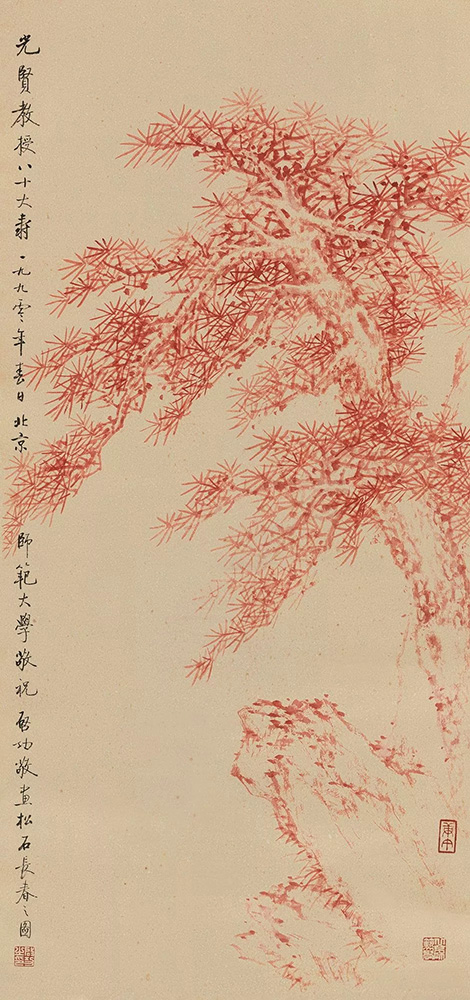 光賢教授八十大壽一九九零年春日北京師範大學敬祝啓功敬畫松石長春之圖
庚午